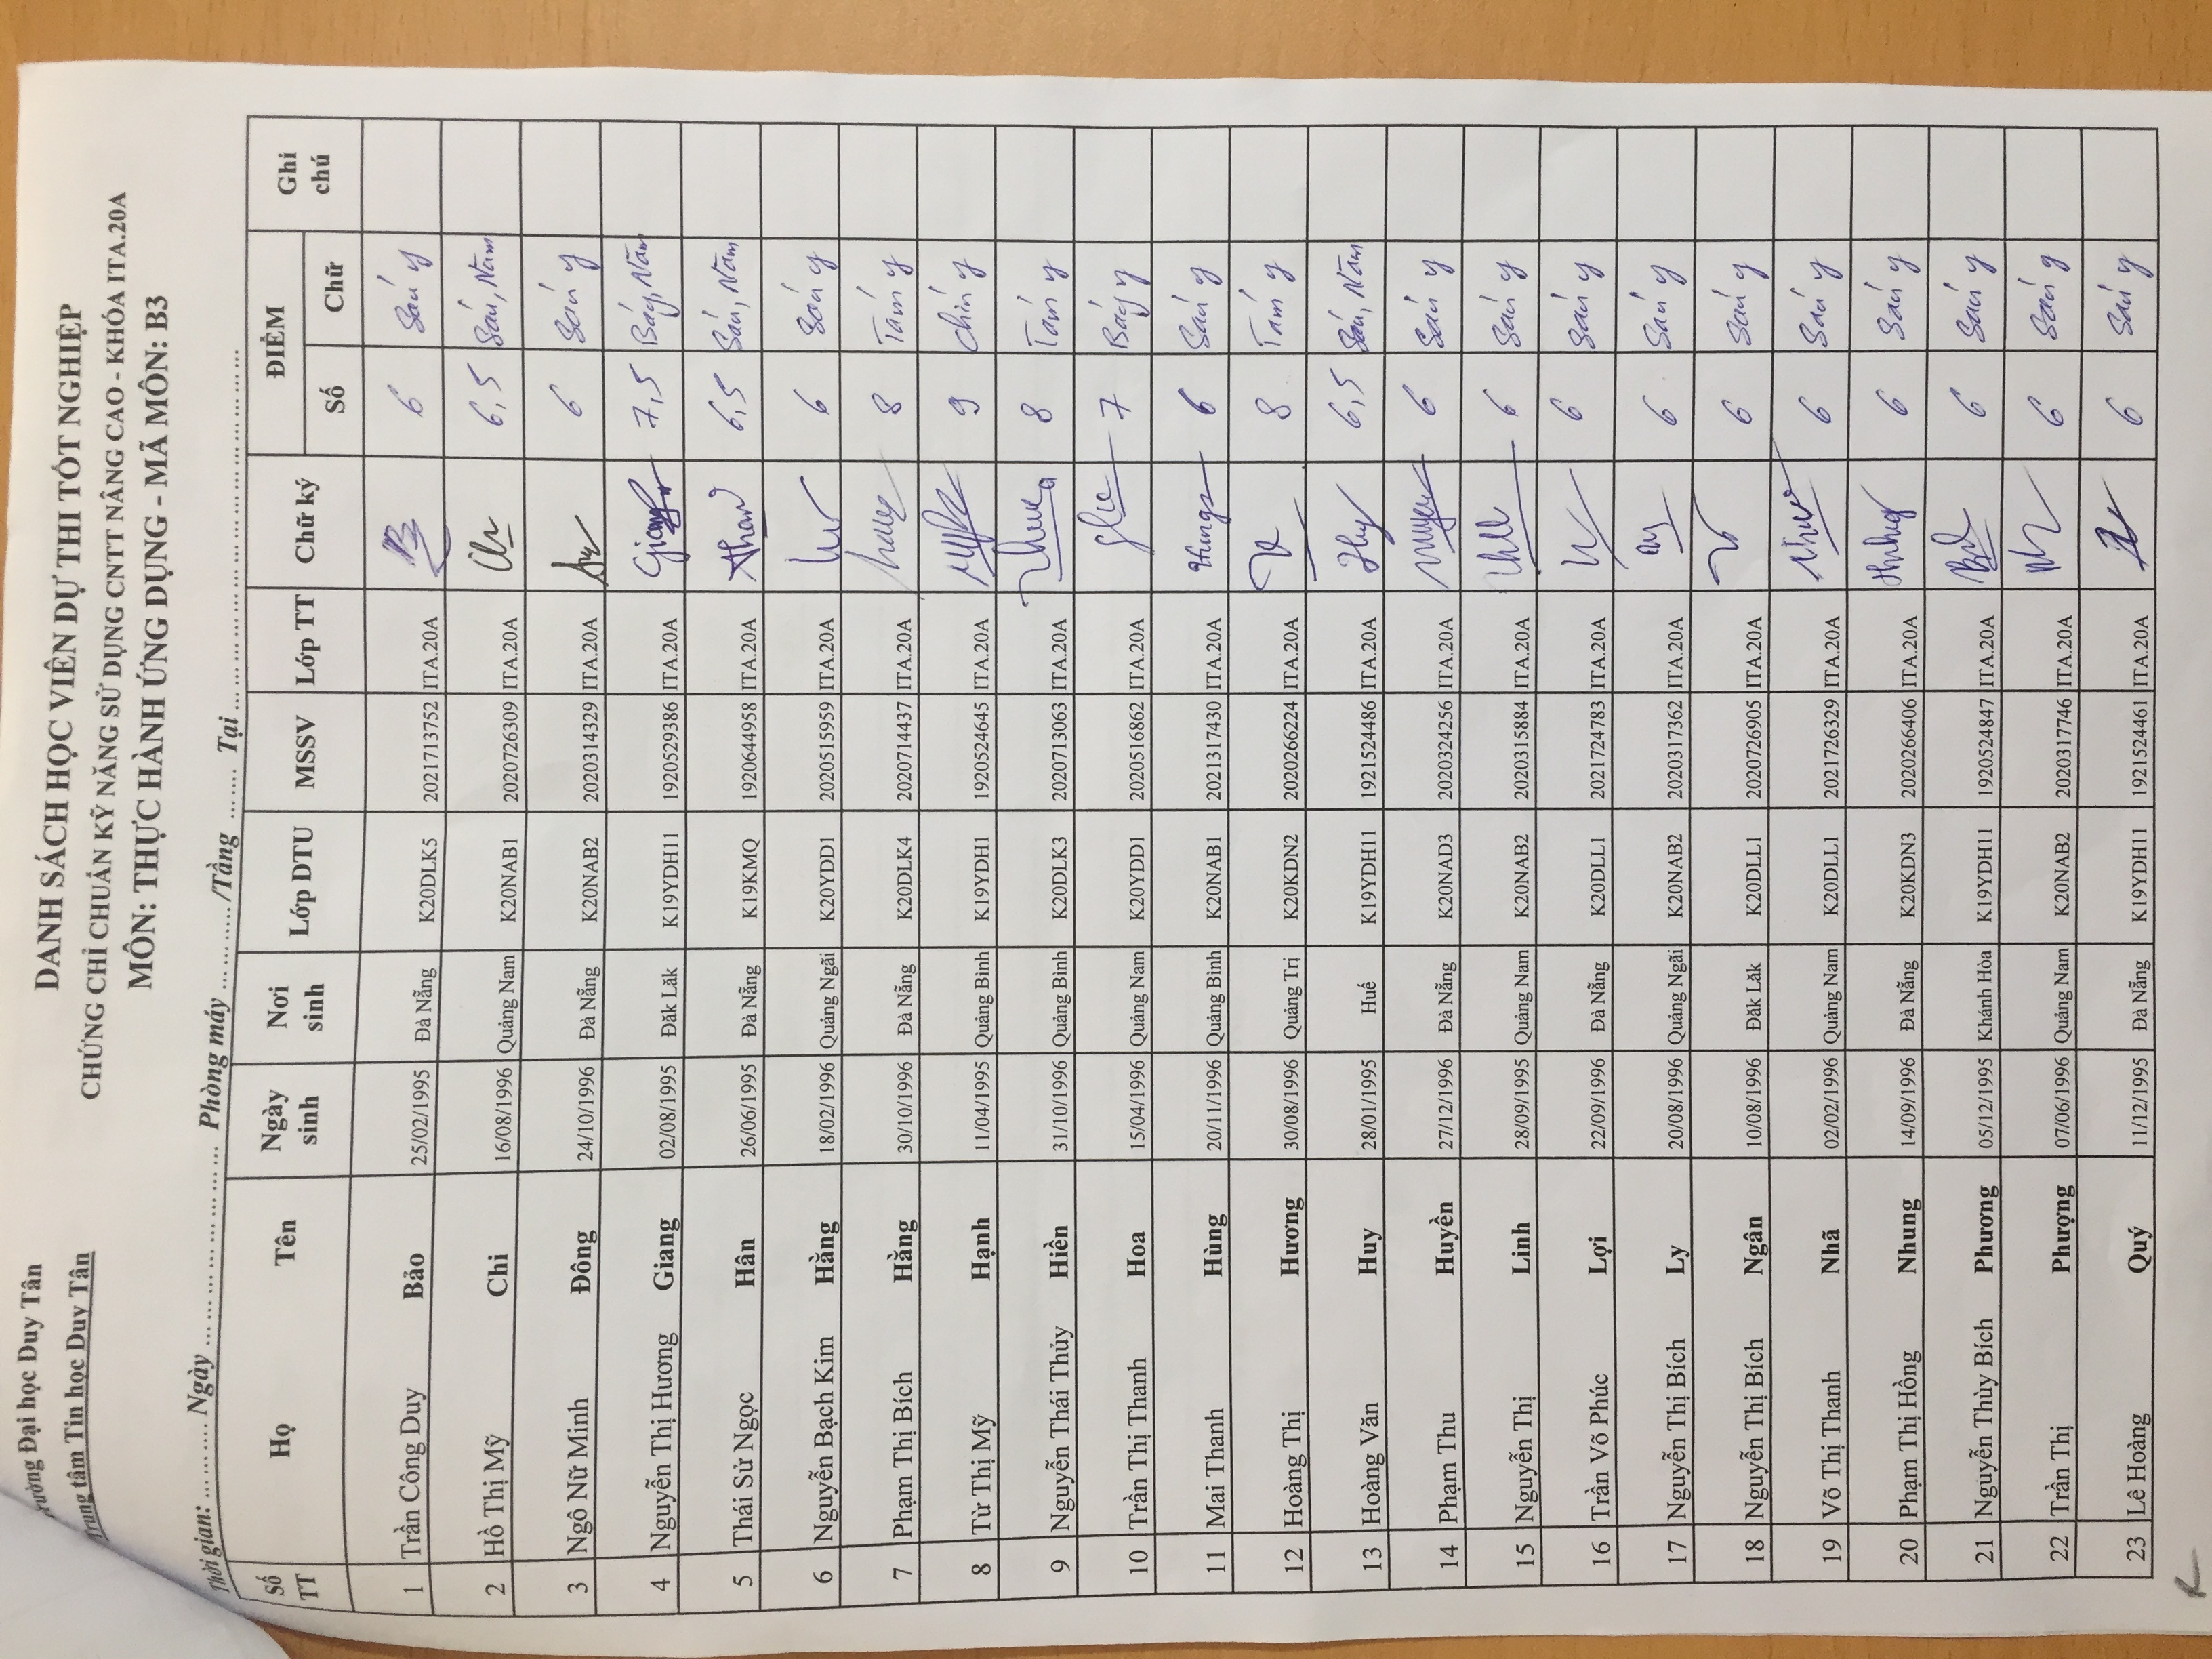 Trường Đại học Duy Tân
Trung tâm Tin học Duy Tân
DANH SÁCH HỌC VIÊN DỰ THI TỐT NGHIỆP
CHỨNG CHỈ CHUẨN KỸ NĂNG SỬ DỤNG CNTT NÂNG CAO - KHÓA ITA.20A
MÔN: THỰC HÀNH ỨNG DỤNG - MÃ MÔN: B3
Thời gian: ... ... ... Ngày ... ... ... ... ... ... Phòng máy ... ... ... /Tầng ... ... Tại ... ... ... ... ... ... ... ... ...
Số TT Họ Tên Ngày sinh Nơi sinh Lớp DTU MSSV Lớp TT Chữ ký ĐIỂM Ghi chú
Số Chữ
1 Trần Công Duy Bảo 25/02/1995 Đà Nẵng K20DLK5 2021713752 ITA.20A 6 Sáu y
2 Hồ Thị Mỹ Chi 16/08/1996 Quảng Nam K20NAB1 2020726309 ITA.20A 6,5 Sáu, Năm
3 Ngô Nữ Minh Đông 24/10/1996 Đà Nẵng K20NAB2 2020314329 ITA.20A 6 Sáu y
4 Nguyễn Thị Hương Giang 02/08/1995 Đăk Lăk K19YDH11 1920529386 ITA.20A Giang 7,5 Bảy, Năm
5 Thái Sử Ngọc Hân 26/06/1995 Đà Nẵng K19KMQ 1920644958 ITA.20A 6,5 Sáu, Năm
6 Nguyễn Bạch Kim Hằng 18/02/1996 Quảng Ngãi K20YDD1 2020515959 ITA.20A 6 Sáu y
7 Phạm Thị Bích Hằng 30/10/1996 Đà Nẵng K20DLK4 2020714437 ITA.20A 8 Tám y
8 Từ Thị Mỹ Hạnh 11/04/1995 Quảng Bình K19YDH1 1920524645 ITA.20A 9 Chín y
9 Nguyễn Thái Thủy Hiền 31/10/1996 Quảng Bình K20DLK3 2020713063 ITA.20A 8 Tám y
10 Trần Thị Thanh Hoa 15/04/1996 Quảng Nam K20YDD1 2020516862 ITA.20A 7 Bảy y
11 Mai Thanh Hùng 20/11/1996 Quảng Bình K20NAB1 2021317430 ITA.20A Hung 6 Sáu y
12 Hoàng Thị Hương 30/08/1996 Quảng Trị K20KDN2 2020266224 ITA.20A 8 Tám y
13 Hoàng Văn Huy 28/01/1995 Huế K19YDH11 1921524486 ITA.20A Huy 6,5 Sáu, Năm
14 Phạm Thu Huyền 27/12/1996 Đà Nẵng K20NAD3 2020324256 ITA.20A 6 Sáu y
15 Nguyễn Thị Linh 28/09/1995 Quảng Nam K20NAB2 2020315884 ITA.20A 6 Sáu y
16 Trần Võ Phúc Lợi 22/09/1996 Đà Nẵng K20DLL1 2021724783 ITA.20A 6 Sáu y
17 Nguyễn Thị Bích Ly 20/08/1996 Quảng Ngãi K20NAB2 2020317362 ITA.20A 6 Sáu y
18 Nguyễn Thị Bích Ngân 10/08/1996 Đăk Lăk K20DLL1 2020726905 ITA.20A 6 Sáu y
19 Võ Thị Thanh Nhã 02/02/1996 Quảng Nam K20DLL1 2021726329 ITA.20A 6 Sáu y
20 Phạm Thị Hồng Nhung 14/09/1996 Đà Nẵng K20KDN3 2020266406 ITA.20A 6 Sáu y
21 Nguyễn Thùy Bích Phương 05/12/1995 Khánh Hòa K19YDH11 1920524847 ITA.20A 6 Sáu y
22 Trần Thị Phượng 07/06/1996 Quảng Nam K20NAB2 2020317746 ITA.20A 6 Sáu y
23 Lê Hoàng Quý 11/12/1995 Đà Nẵng K19YDH11 1921524461 ITA.20A 6 Sáu y